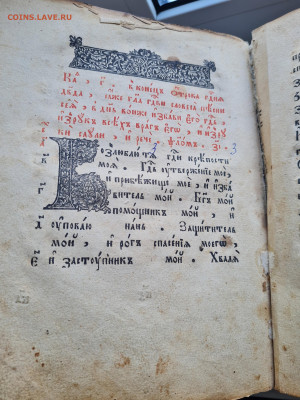 COINS.LAVE.RU
в҃ конецъ ѿрока гднѧ
дв҃да, ꙗже гл҃а гдви словеса пѣсни
сеѧ, в днь воньже избави его гдь,
ѿ рꙋкъ всѣхъ врагъ его, и из рꙋ
ки саꙋли, и рече. ѱалом, з҃і. 3
Возлюблю тѧ гди крѣпосте
моѧ. Гдь ѹтвержение мое,
и прибѣжище мое, и изба
витель мой. Бг҃ъ мой
помощникъ мой, и
ѹповаю нань. Защититель
мой, и рогъ спасенїѧ моегѡ,
и застꙋпникъ мой. Хвалѧ